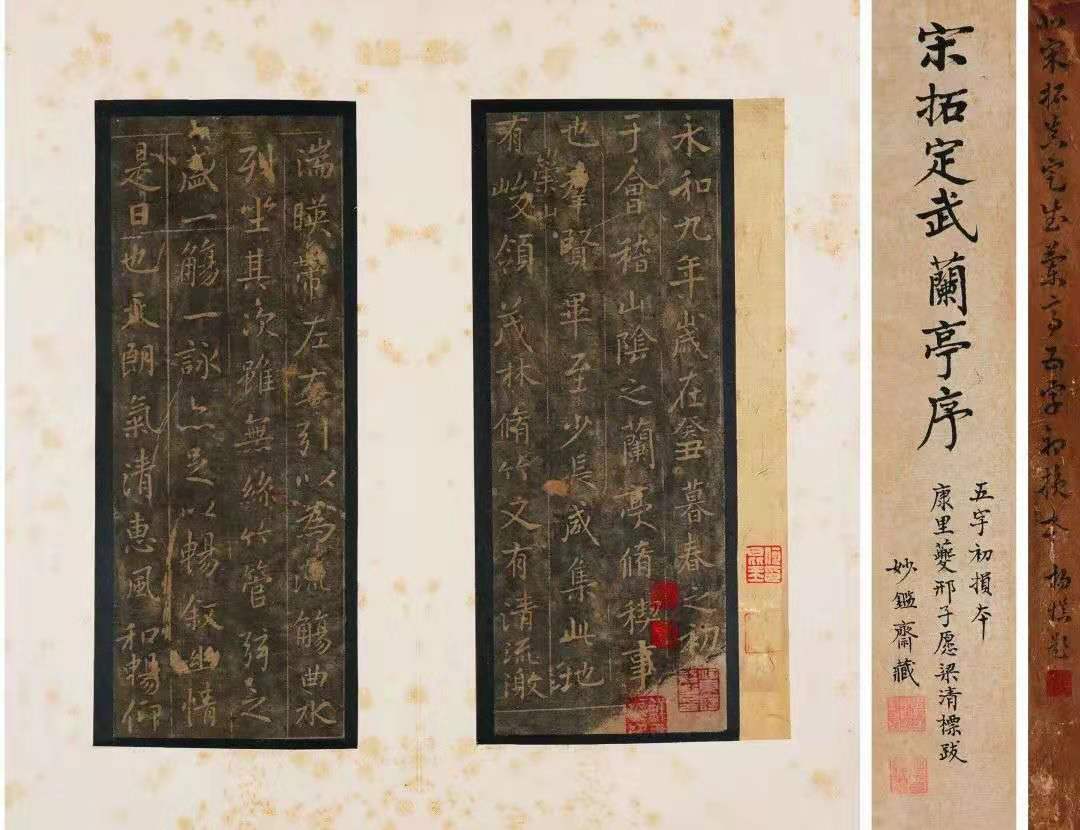 永和九年歲在癸丑暮春之初會
于會稽山陰之蘭亭脩稧事
也羣賢畢至少長咸集此地
有崇山峻領茂林脩竹又有清流激
湍暎帶左右引以為流觴曲水
列坐其次雖無絲竹管弦之
盛一觴一詠亦足以暢叙幽情
是日也天朗氣清惠風和暢仰
宋拓定武蘭亭序
五字初損本
康里夔邢子愿梁清標跋
妙鑑齋藏
北宋拓真定武蘭亭五字初損本 楊慎題